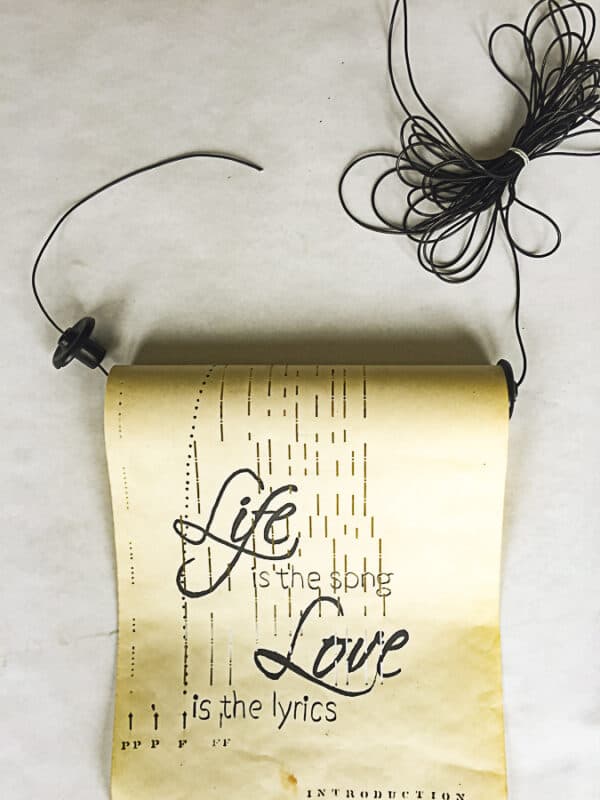 Life
is the song
Love
is the lyrics
PP P F FF
INTRODUCTION